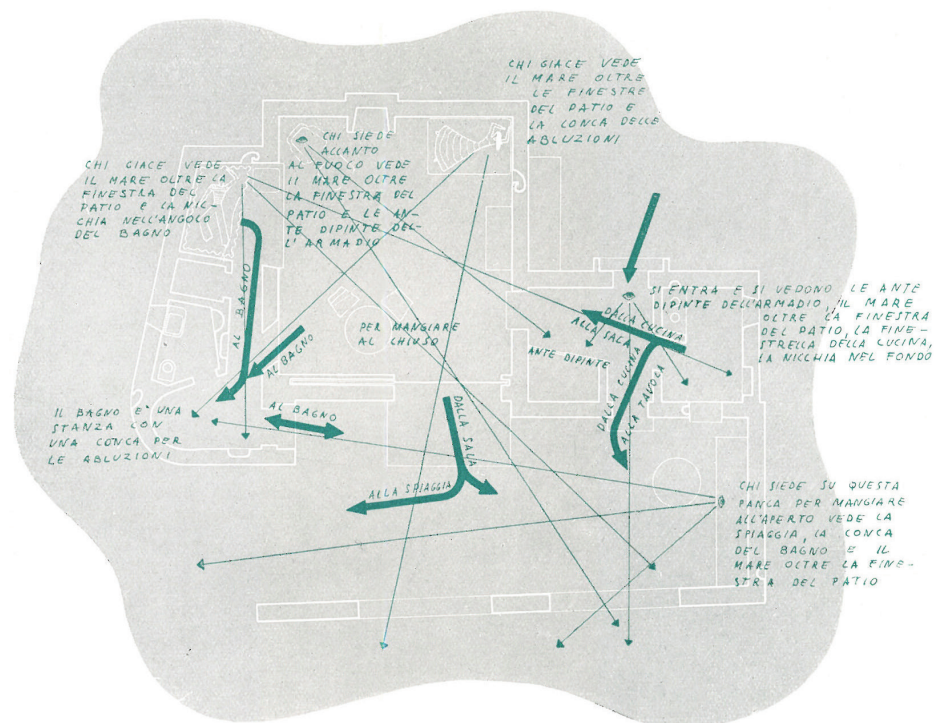 CHI GIACE VEDE
IL MARE OLTRE
LE FINESTRE
DEL PATIO E
LA CONCA DELLE
ABLUZIONI
CHI SIEDE
ACCANTO
AL FUOCO VEDE
Il MARE OLTRE
LA FINESTRA DEL
PATIO E LE AN-
TE DIPINTE DEL-
L'ARMADIO
CHI GIACE VEDE
IL MARE OLTRE LA
FINESTRA DEL
PATIO E LA NIC-
CHIA NELL'ANGOLO
DEL BAGNO
AL BAGNO
AL BAGNO
PER MANGIARE
AL CHIUSO
SI ENTRA E SI VEDONO LE ANTE
DIPINTE DELL'ARMADIO, IL MARE
OLTRE LA FINESTRA
DEL PATIO, LA FINE-
STRELLA DELLA CUCINA,
LA NICCHIA NEL FONDO
DALLA CUCINA
ALLA SALA
ANTE DIPINTE
DALLA CUCINA
ALLA TAVOLA
IL BAGNO E' UNA
STANZA CON
UNA CONCA PER
LE ABLUZIONI
AL BAGNO
DALLA SALA
ALLA SPIAGGIA
CHI SIEDE SU QUESTA
PANCA PER MANGIARE
ALL'APERTO VEDE LA
SPIAGGIA, LA CONCA
DEL BAGNO E IL
MARE OLTRE LA FINE-
STRA DEL PATIO